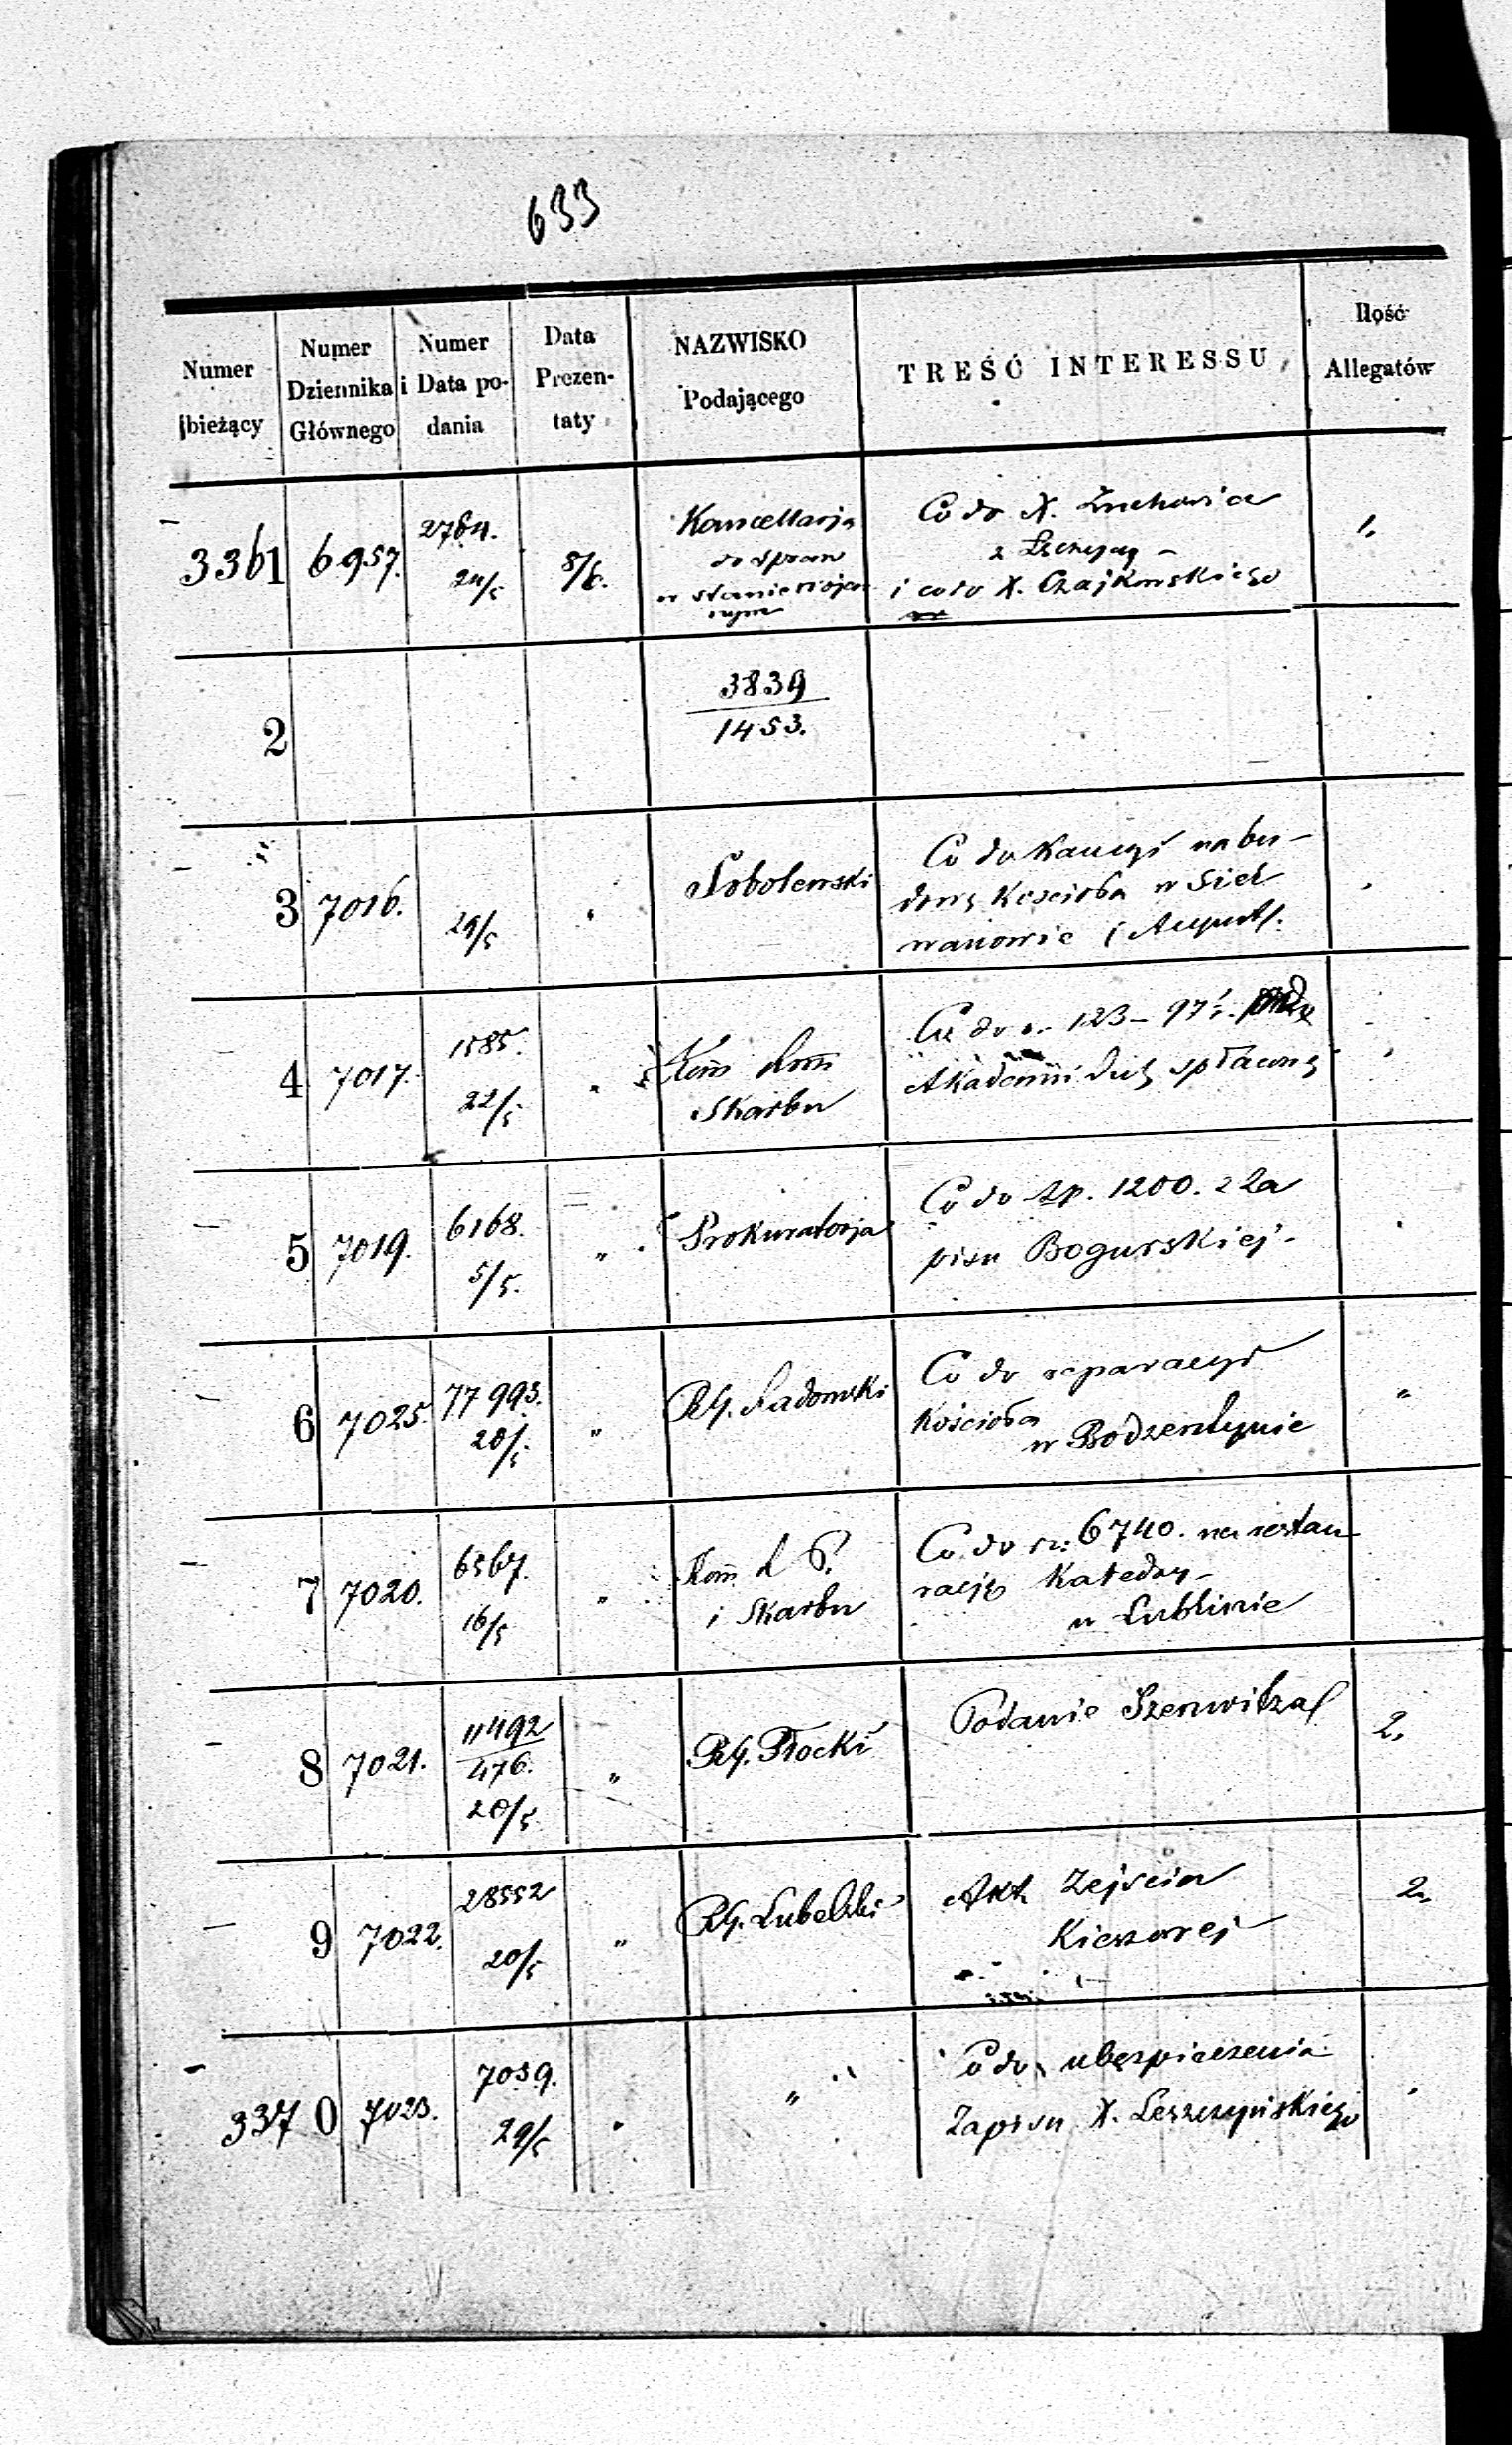 633
Numer bieżący
Numer Dziennika Głównego
Numer i Data podania
Data Prezentaty
NAZWISKO Podającego
TREŚĆ INTERESSU
Ilość Allegatów
3361 6957. 2764. 24/5 8/6. Kancellarja
do spraw
w stanie wojen
nym
Co do X. Żuchowica
z
i co do X. Czajkowskiego
1.
2
3839
1453.
3 7016. 29/5 Sobolewski
Co do Kaucyi na bu-
dowę Kościoła w Siel
wanowie (August).
4 7017. 1585. 22/5 " Kom
Skarbu
Co do r. 123 - 97
Akademii Duch spłaconą
5 7019. 6168. 5/5. " Prokuratorja
Co do Zp. 1200. z Za
pisu Bogurskiej-
6 7025. 77993. 20/5 " RG. Radomski
Co do reparacyi
Kościoła
w Bodzentynie
"
7 7020. 6567. 16/5 " Kom P.
i Skarbu
Co do rs: 6740. na restau
racją Katedry-
w Lublinie
8 7021. 11492
476.
20/5 " RG. Płocki
Podanie
2.
9 7022. 28552 20/5 " RG. Lubelski
Akt Zejścia
2.
3370 7023. 7039. 29/5 " "
Co do ubezpieczenia
Zapisu X. Leszczyńskiego